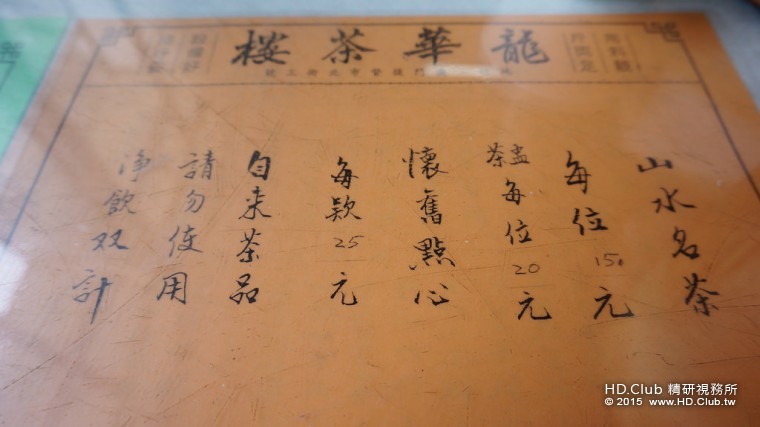 龍華茶楼
山水名茶
每位150元
茶盅每位20元
懷舊點心
每款25元
自来茶品
請勿使用
净飲双計
HD.Club 精研視務所
© 2015 www.HD.Club.tw